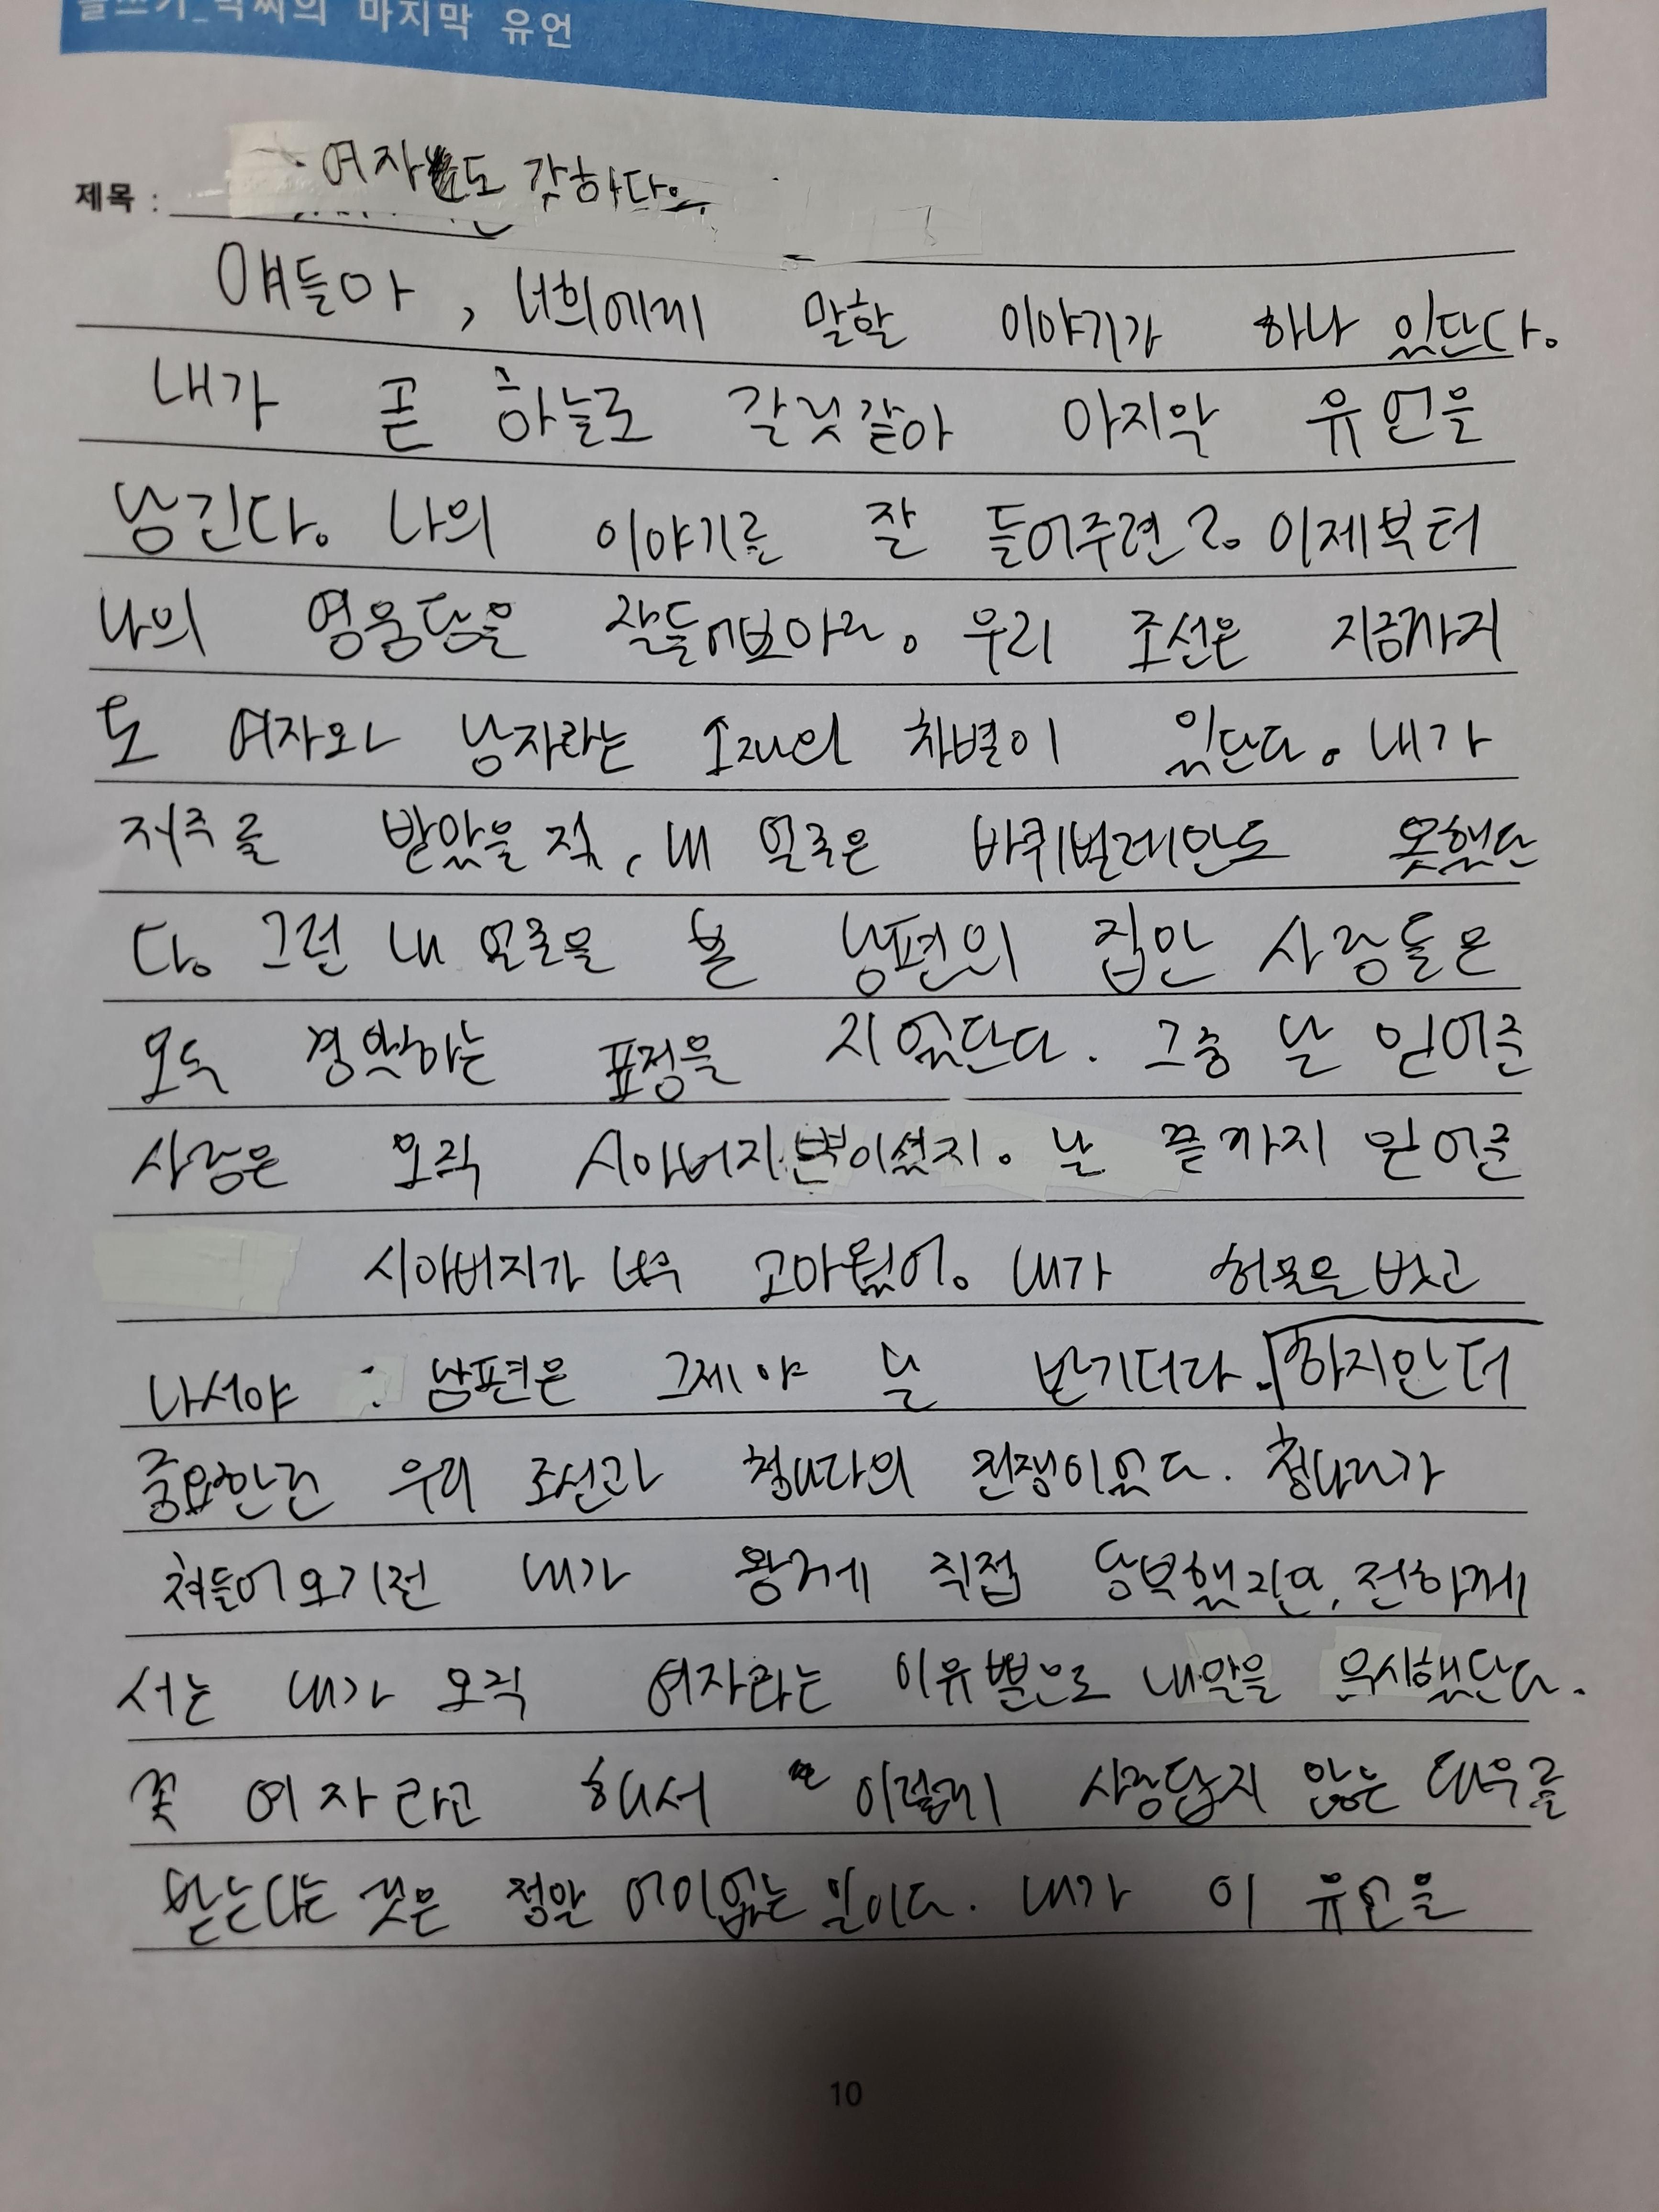 글쓰기_박씨의 마지막 유언
제목 : 여자도 강하다.
얘들아, 너희에게 말할 이야기가 하나 있단다.
내가 곧 하늘로 갈것같아 마지막 유언을
남긴다. 나의 이야기를 잘 들어주련?. 이제부터
나의 영웅담을 잘들어보아라. 우리 조선은 지금까지
도 여자와 남자라는 소재의 차별이 있단다. 내가
저주를 받았을 적, 내 얼굴은 바퀴벌레만도 못했단
다. 그런 내 얼굴을 본 남편의 집안 사람들은
모두 경악하는 표정을 지었단다. 그중 날 믿어준
사람은 오직 시아버지뿐이셨지. 날 끝까지 믿어준
시아버지가 너무 고마웠어. 내가 허물을 벗고
나서야 남편은 그제야 날 반기더라. 하지만 더
중요한건 우리 조선과 청나라의 전쟁이었다. 청나라가
쳐들어오기전 내가 왕께 직접 당부했지만, 전하께
서는 내가 오직 여자라는 이유뿐으로 내말을 무시했단다.
꼭 여자라고 해서 이렇게 사람답지 않은 대우를
받는다는 것은 정말 어이없는 일이다. 내가 이 유언을
10